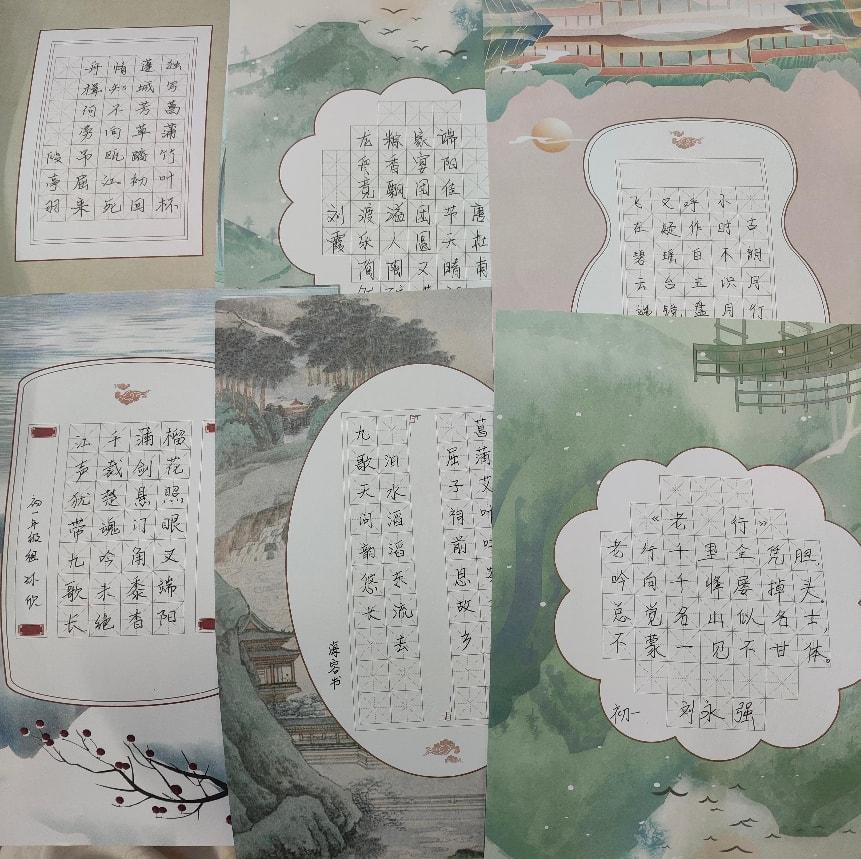 独写菖蒲竹叶杯
蓬城芳草踏初回
情知不向瓯江死
舟楫何劳吊屈来
亭羽
唐杜甫
端阳佳节天晴
家宴团圆又
粽香飘溢人陶
龙舟竞渡乐
刘霞
古朗月行
小时不识月
呼作白玉盘
又疑瑶台镜
飞在碧云端
榴花照眼又端阳
蒲剑悬门角黍香
千载楚魂吟未绝
江声犹带九歌长
初一年级组孙欣
菖蒲艾叶
屈子祠前思故乡
汨水滔滔东流去
九歌天问韵悠长
海容书
《老 行》
老行千里全凭胆,
吟向千峰屡掉头
总觉名山似名士,
不蒙一见不甘体。
初一 刘永强